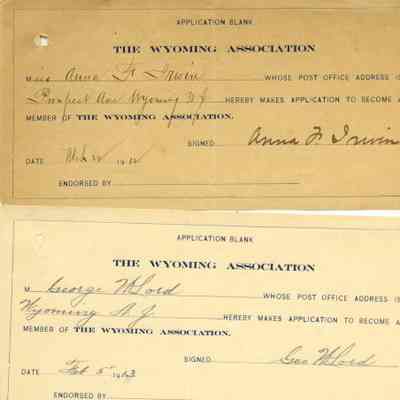 APPLICATION BLANK
THE WYOMING ASSOCIATION
Miss Anna F. Irwin WHOSE POST OFFICE ADDRESS IS
Prospect Ave Wyoming N J HEREBY MAKES APPLICATION TO BECOME A
MEMBER OF THE WYOMING ASSOCIATION.
SIGNED Anna F Irwin
DATE
ENDORSED BY
APPLICATION BLANK
THE WYOMING ASSOCIATION
M George W Lord WHOSE POST OFFICE ADDRESS IS
Wyoming N. J. HEREBY MAKES APPLICATION TO BECOME A
MEMBER OF THE WYOMING ASSOCIATION.
SIGNED Geo W Lord
DATE Feb 5"
ENDORSED BY